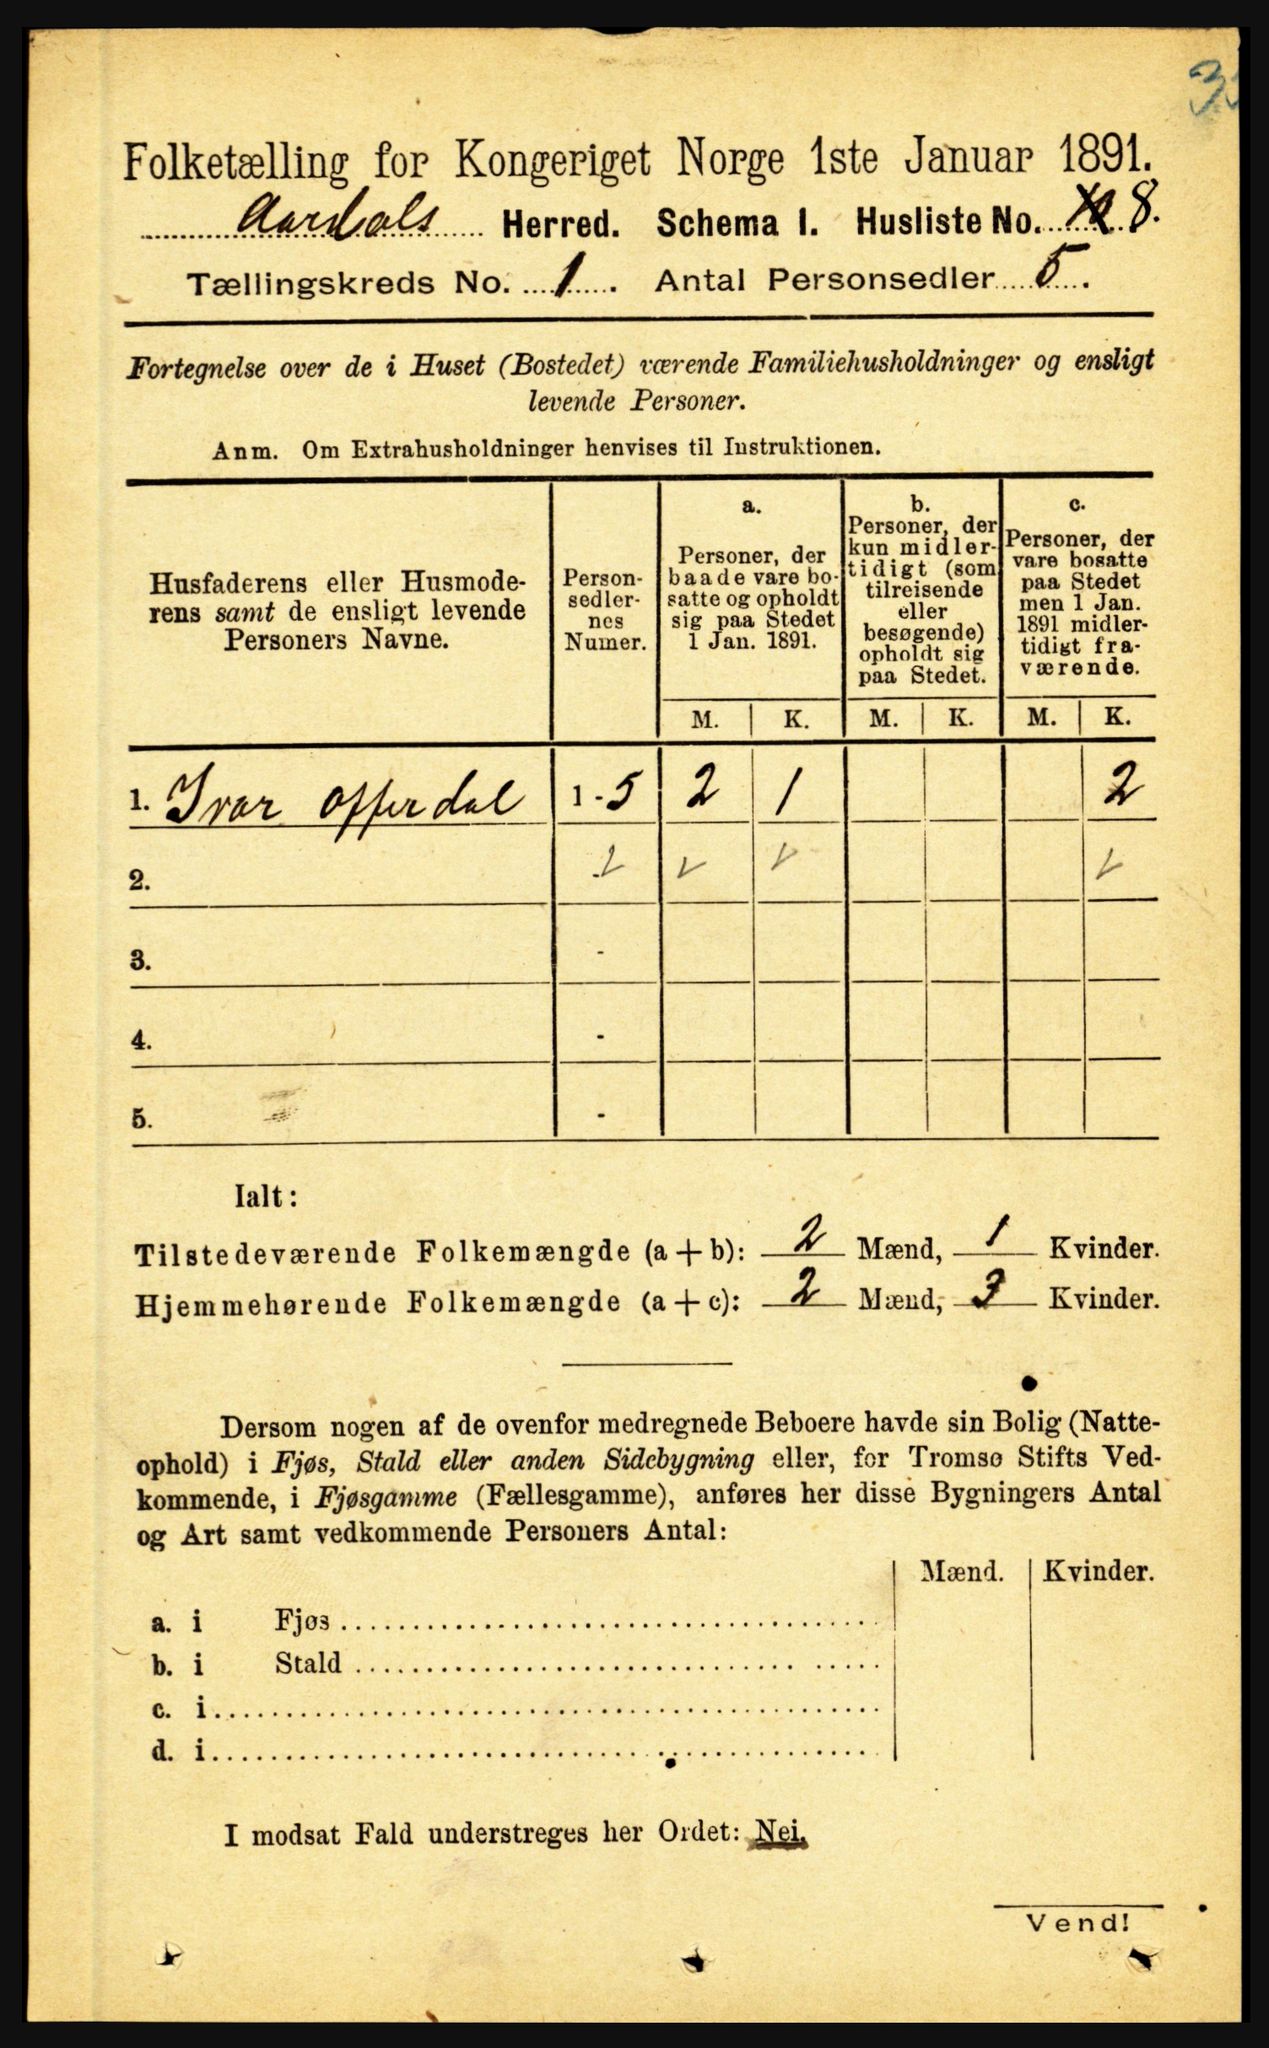 Folketælling for Kongeriget Norge 1ste Januar 1891.
Aardals Herred. Schema I. Husliste No. 8.
Tællingskreds No. 1. Antal Personsedler 5.
Fortegnelse over de i Huset (Bostedet) værende Familiehusholdninger og ensligt
levende Personer.
Anm. Om Extrahusholdninger henvises til Instruktionen.
Husfaderens eller Husmode-
rens samt de ensligt levende
Personers Navne.
Person-
sedler-
nes
Numer.
a.
Personer, der
baade vare bo-
satte og opholdt
sig paa Stedet
1 Jan. 1891.
b.
Personer, der
kun midler-
tidigt (som
tilreisende
eller
besøgende)
opholdt sig
paa Stedet.
c.
Personer, der
vare bosatte
paa Stedet
men 1 Jan.
1891 midler-
tidigt fra-
værende.
M. K. M. K. M. K.
1. Ivar Offerdal 1-5 2 1 2
2.
3. -
4. -
5. -
Ialt:
Tilstedeværende Folkemængde (a+b): 2 Mænd, 1 Kvinder.
Hjemmehørende Folkemængde (a+c): 2 Mænd, 3 Kvinder.
Dersom nogen af de ovenfor medregnede Beboere havde sin Bolig (Natte-
ophold) i Fjøs, Stald eller anden Sidebygning eller, for Tromsø Stifts Ved-
kommende, i Fjøsgamme (Fællesgamme), anføres her disse Bygningers Antal
og Art samt vedkommende Personers Antal:
Mænd. Kvinder.
a. i Fjøs
b. i Stald
c. i
d. i
I modsat Fald understreges her Ordet: Nei.
Vend!